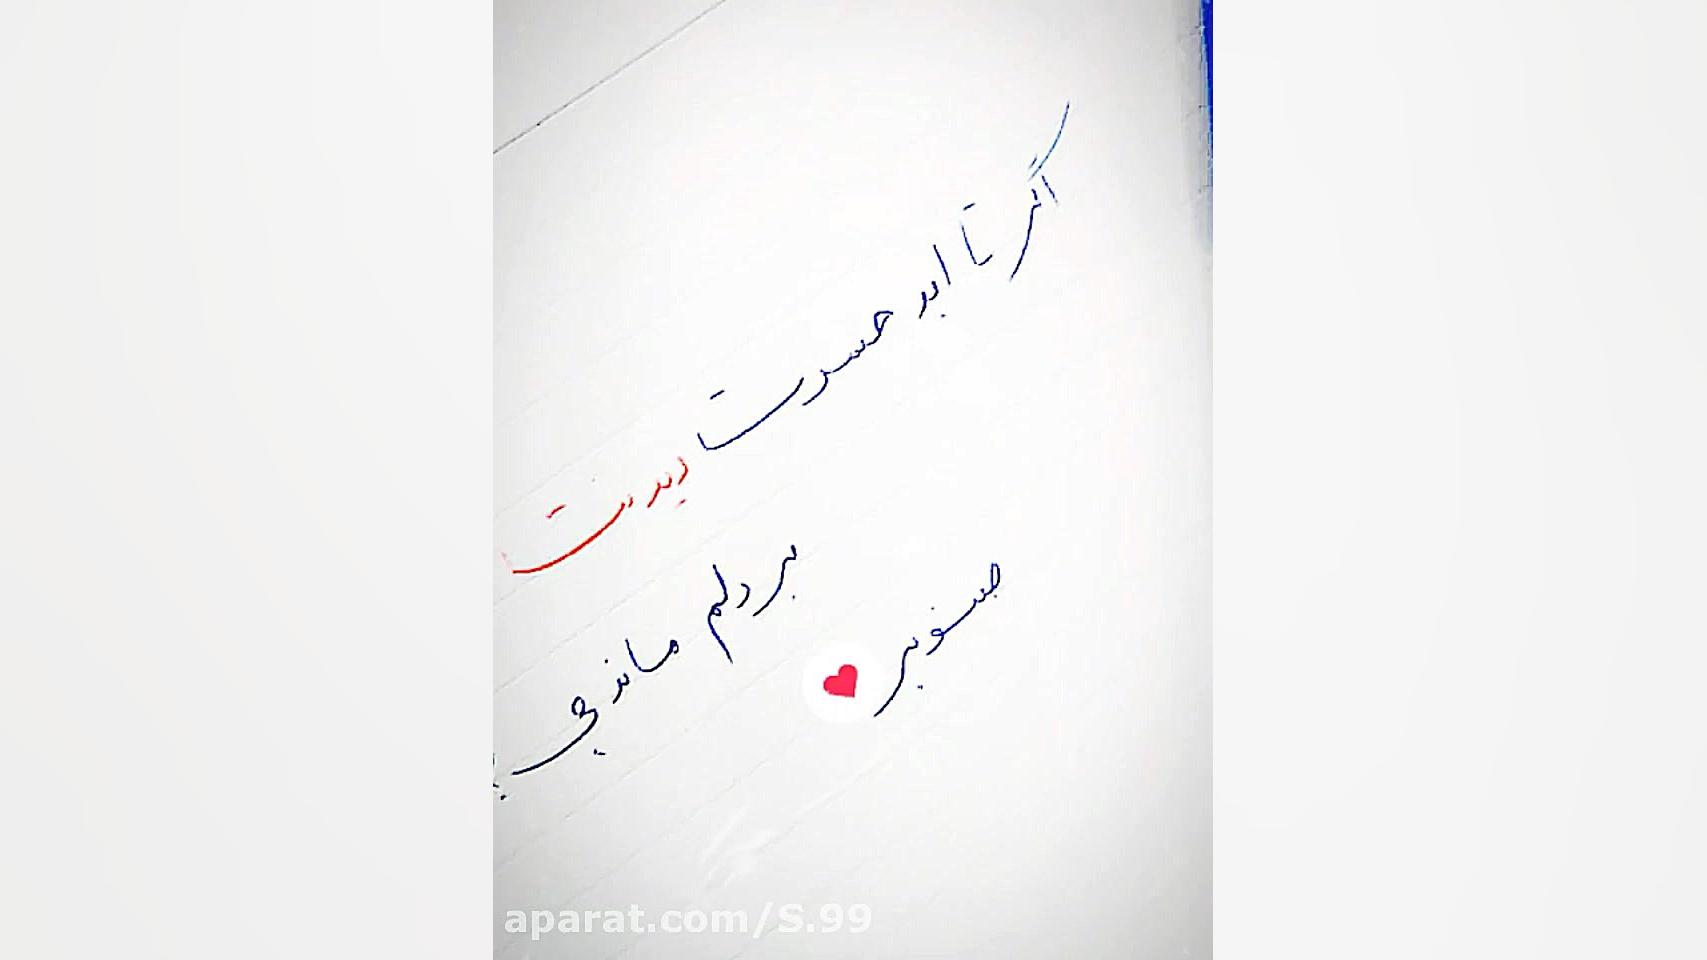 اگر تا ابد حسرت دیدنت
بر دلم ماند چی
صنوبر
aparat.com/S.99